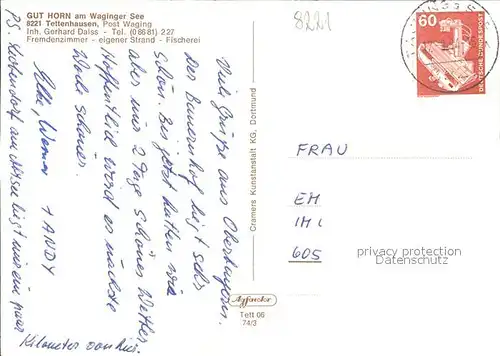 GUT HORN am Waginger See
8221 Tettenhausen, Post Waging
Inh. Gerhard Daiss - Tel. (0 86 81) 2 27
Fremdenzimmer - eigener Strand - Fischerei
8221
60
DEUTSCHE BUNDESPOST
Viele Grüße aus Oberbayern.
Der Bauernhof liegt sehr
schön. Bis jetzt hatten wir
aber nur 2 Tage schönes Wetter
Hoffentlich wird es nächste
Woche schöner.
Elke, Werner + ANDY
PS. am liegt nur ein paar
Kilometer von hier.
Cramers Kunstanstalt KG, Dortmund
Tett 06
74/3
FRAU
EM
IM
605
privacy protection
www.vdmedien.com